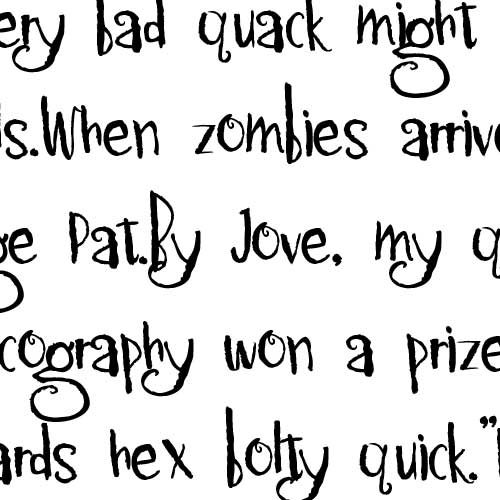 ery bad quack might
is.When zombies arrive
ge Pat.By Jove, my q
cography won a prize
ards hex bolty quick."